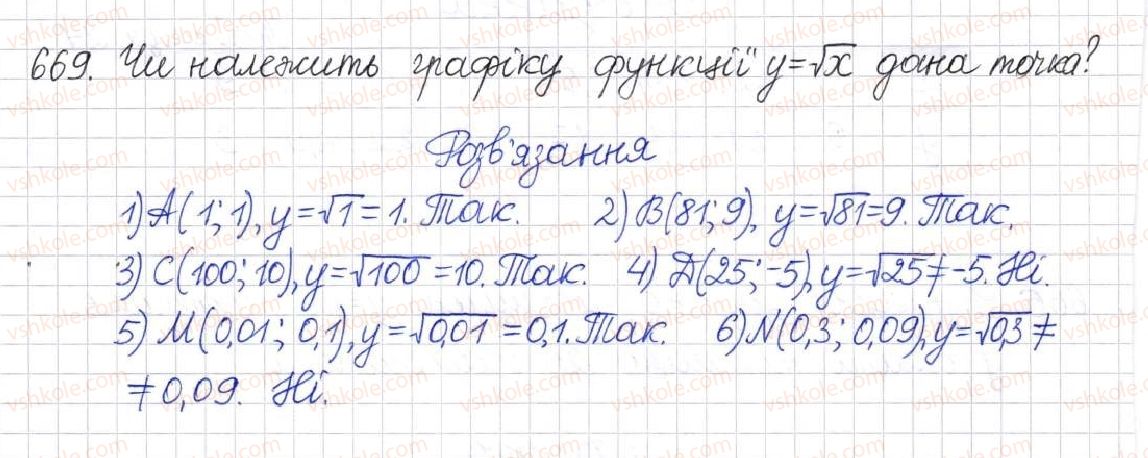 669. Чи належить графіку функції y=√x дана точка?
Розв'язання
1) A(1; 1), y=√1=1. Так. 2) B(81; 9), y=√81=9. Так.
3) C(100; 10), y=√100=10. Так. 4) D(25; -5), y=√25≠-5. Ні.
5) M(0,01; 0,1), y=√0,01=0,1. Так. 6) N(0,3; 0,09), y=√0,3≠
≠0,09. Ні.